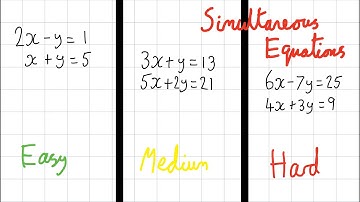 Simultaneous
Equations
2x-y=1
x+y=5
Easy
3x+y=13
5x+2y=21
Medium
6x-7y=25
4x+3y=9
Hard